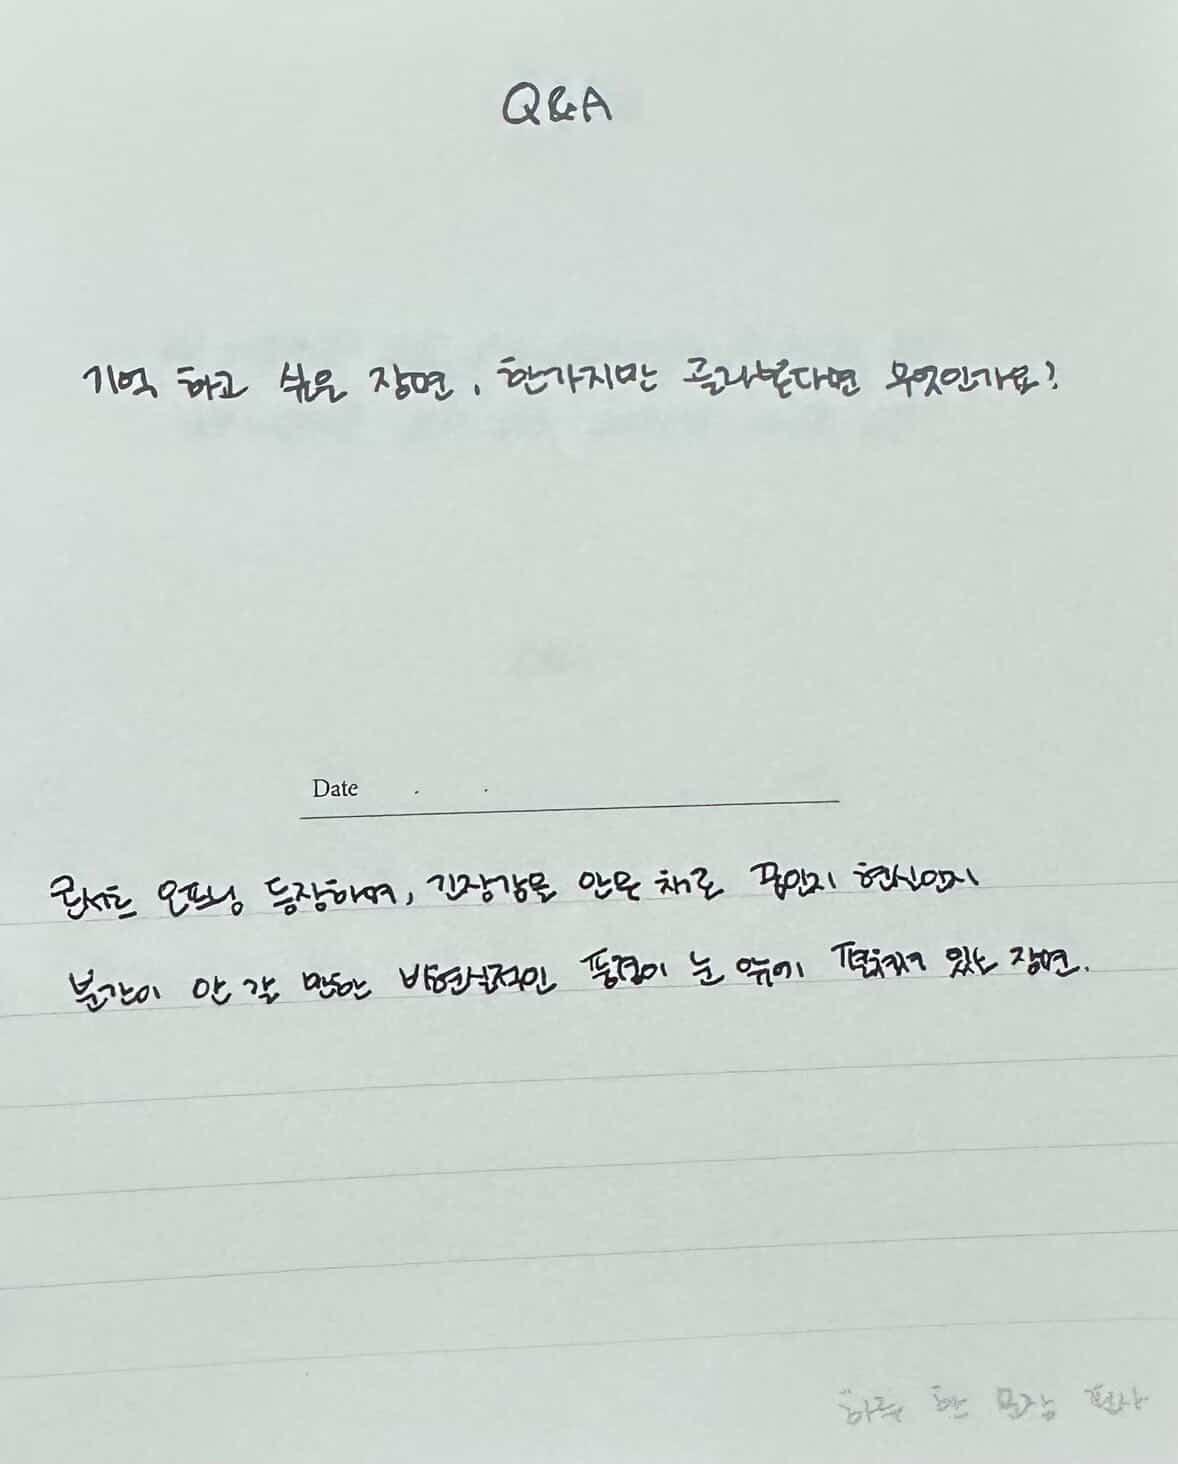 Q&A
기억 하고 싶은 장면, 한가지만 골라본다면 무엇인가요?
Date . .
콘서트 오프닝 등장하며, 긴장감을 안은 채로 꿈인지 현실인지
분간이 안 갈 만한 비현실적인 풍경이 눈 앞에 펼쳐져 있는 장면.
하루 한 문장 필사